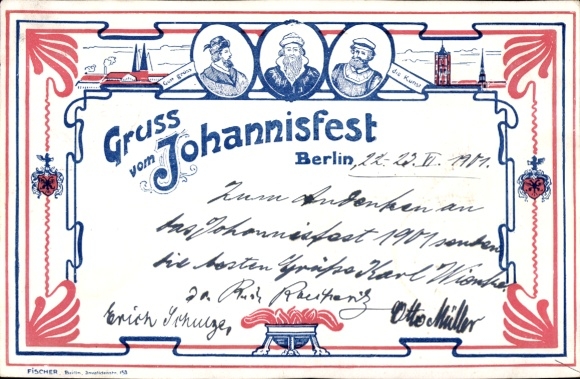 Gott grüss die Kunst
Gruss
vom Johannisfest
Berlin, 22-23. VI. 1901.
Zum Andenken an
das Johannisfest 1901 senden
die besten Grüße Karl
Otto Müller
Erich Schulze,
FISCHER, Berlin,